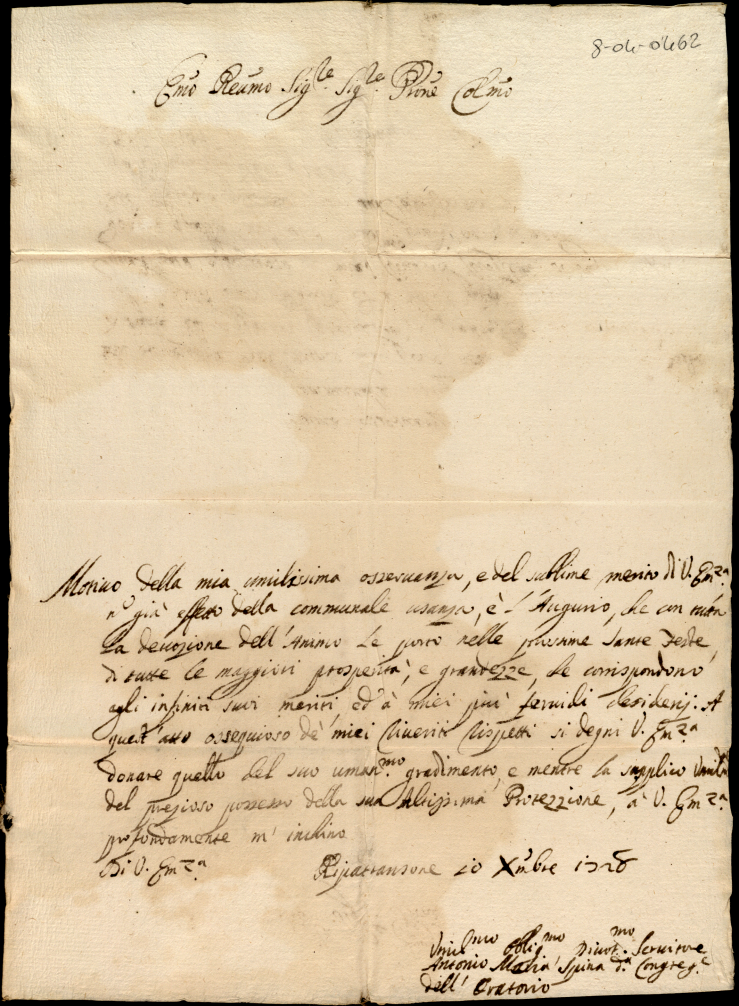 8-04-0462
Emo Reumo Sigre Sigre Prone Colmo
Motiuo della mia umilissima osseruanza, e del sublime merito di V. Emza
no già effetto della communale usanza, è l'Augurio, che con tutta
la deuozione dell'Animo Le porto nelle prossime Sante Feste,
di tutte le maggiori prosperità, e grandezze, che corrispondono
agli infiniti suoi meriti ed' à miei più feruidi desiderij. A
quest'atto ossequioso de' miei riueriti rispetti si degni V. Emza
donare quello del suo umanmo. gradimento, e mentre la supplico
del prezioso possesso della sua Altissima Protezzione, à V. Emza.
profondamente m' inchino
Di V. Emza. Ripatransone 20 Xmbre 1728
Umilmo Obligmo Diuotmo. Seruitore
Antonio Maria Spina da. Congrege
dell' Oratorio